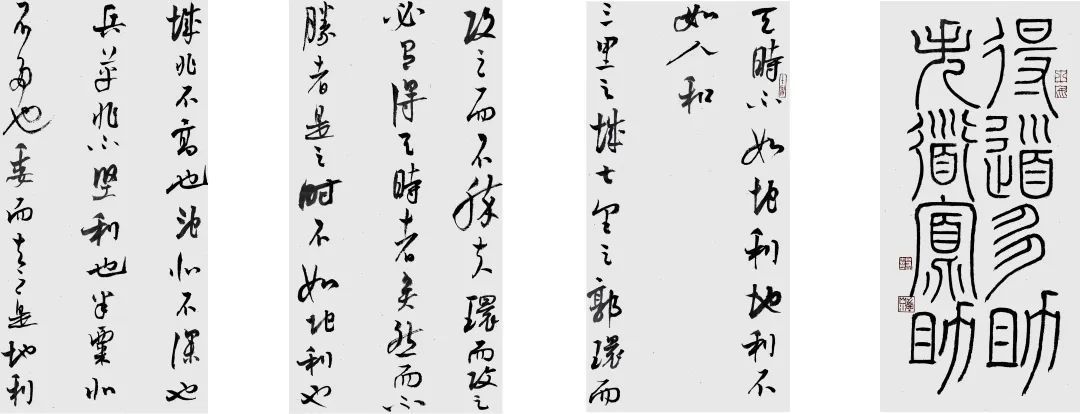 得道多助
失道寡助
天時不如地利地利不
如人和
三里之城七里之郭環而
攻之而不勝夫環而攻之
必有得天時者矣然而不
勝者是天時不如地利也
城非不高也池非不深也
兵革非不堅利也米粟非
不多也委而去之是地利